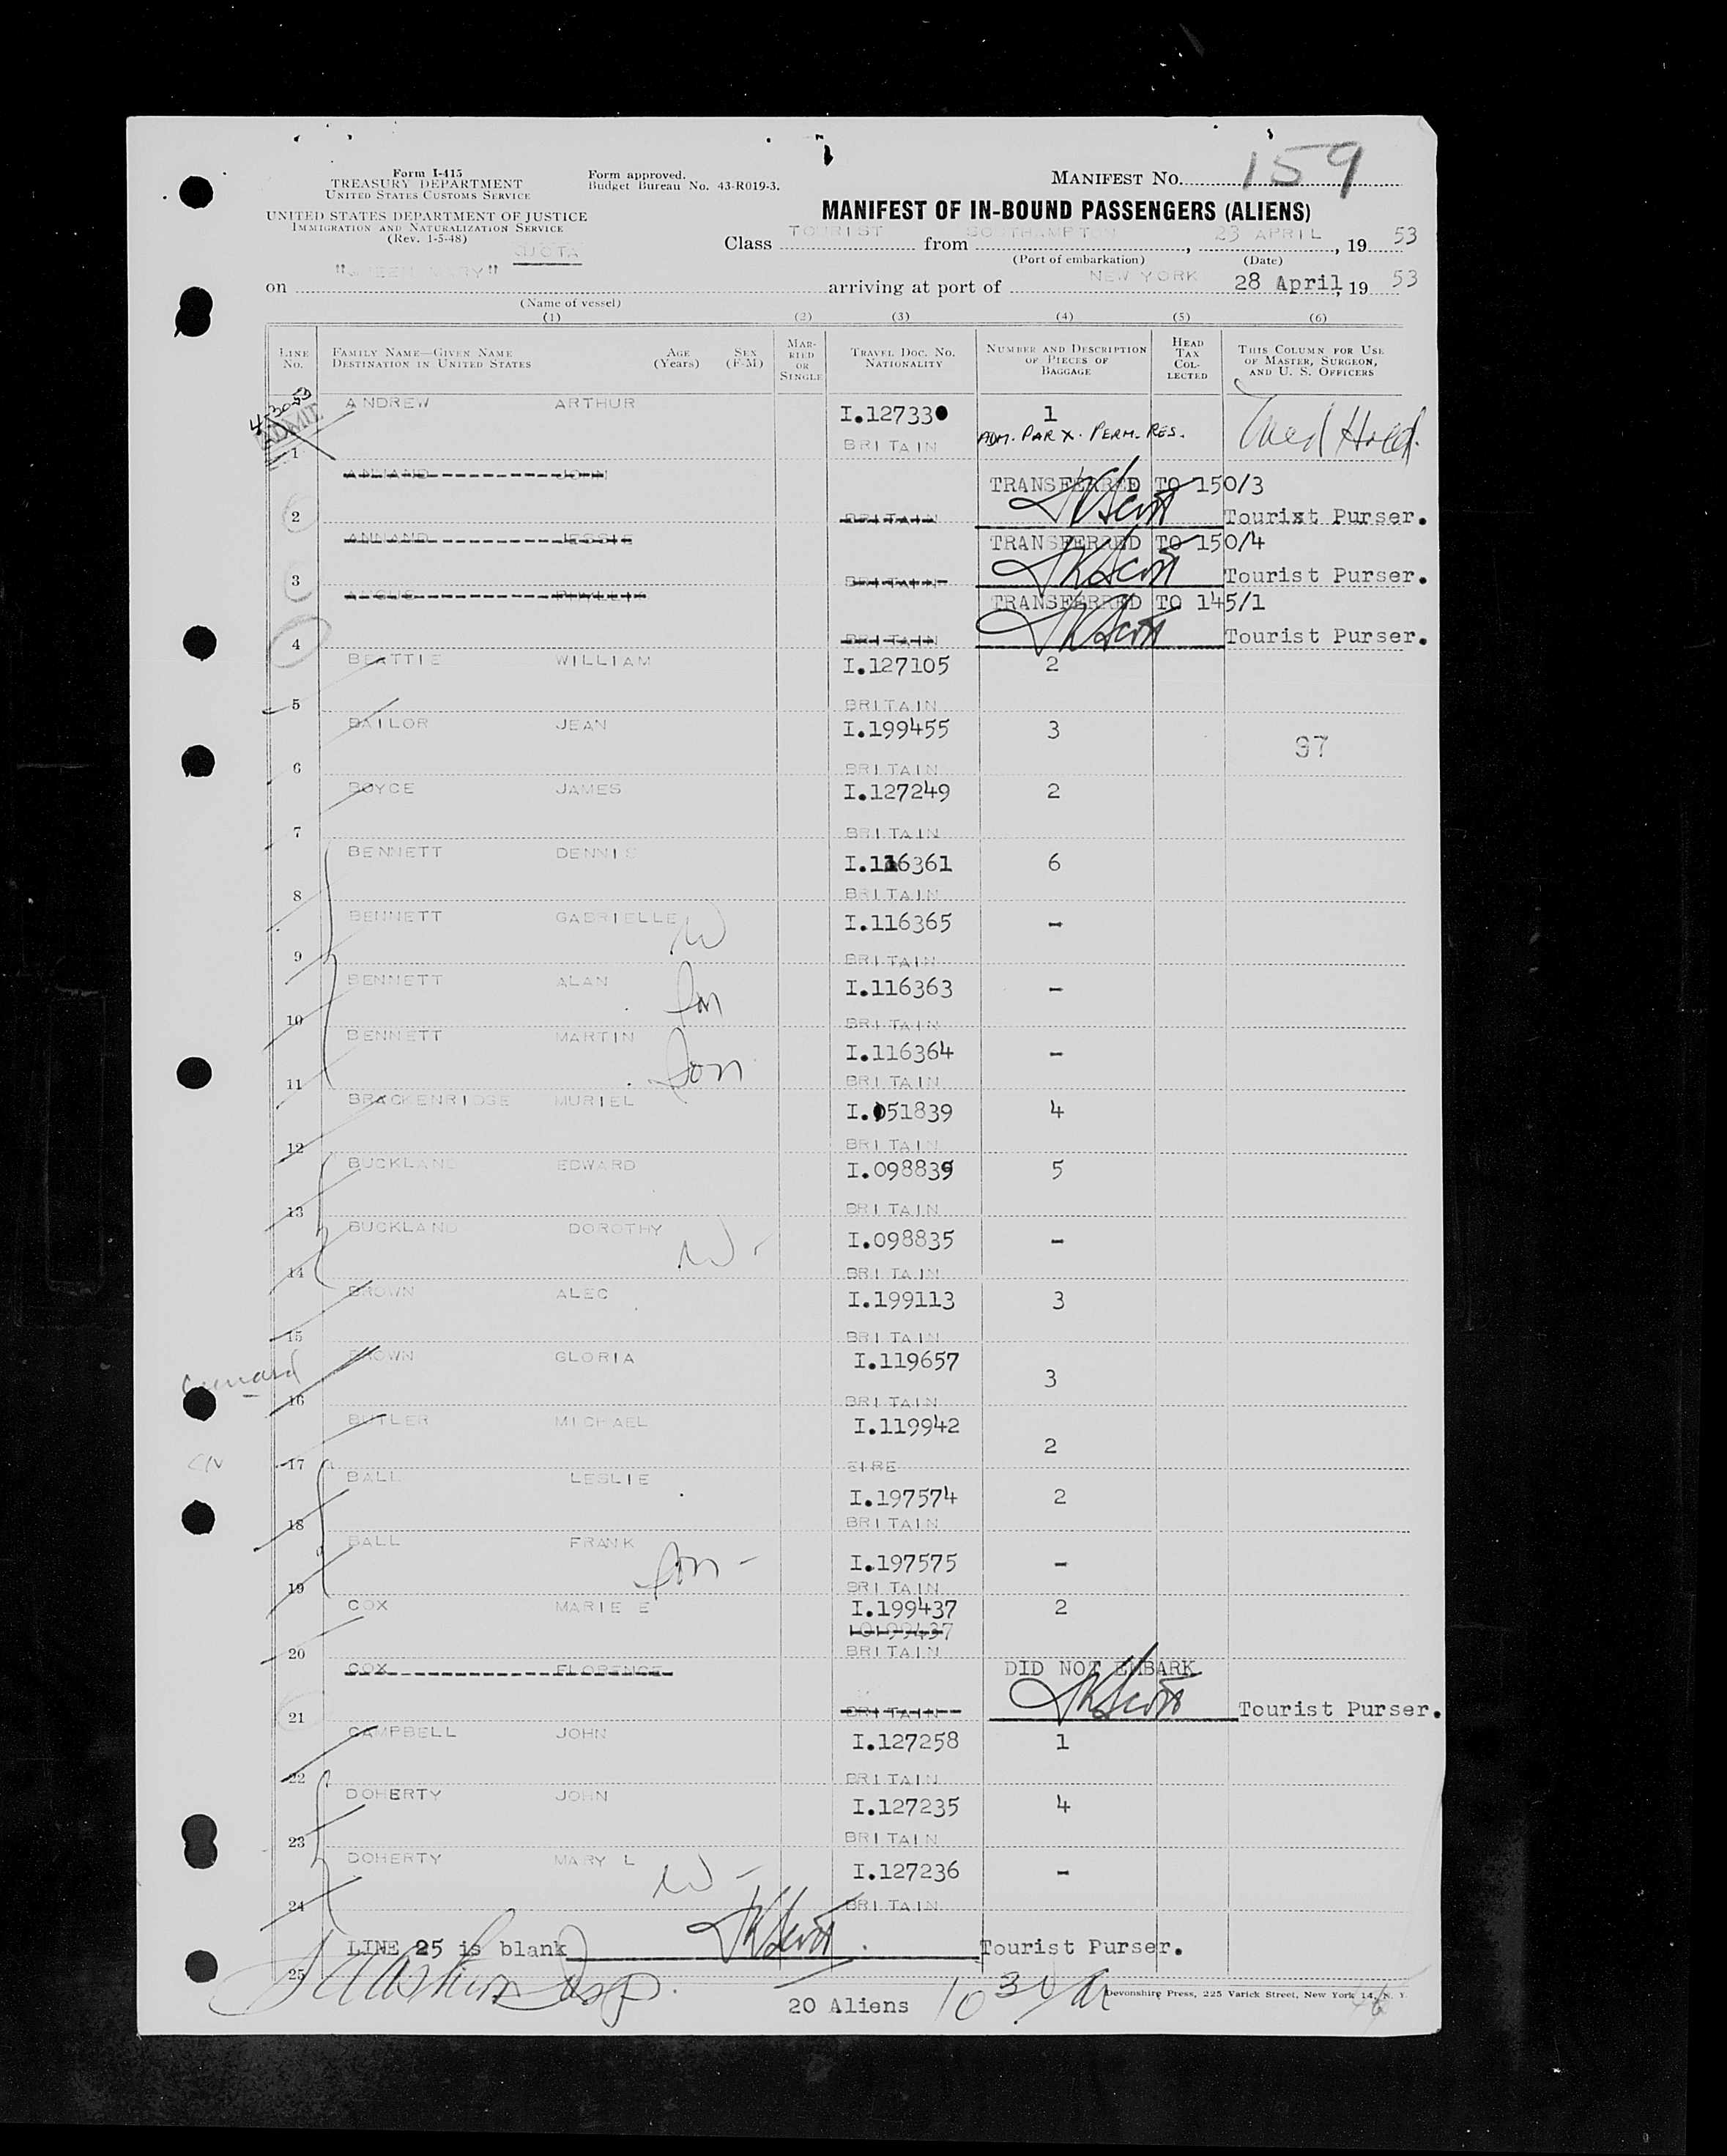 159
Form I-415
TREASURY DEPARTMENT
UNITED STATES CUSTOMS SERVICE
UNITED STATES DEPARTMENT OF JUSTICE
IMMIGRATION AND NATURALIZATION SERVICE
(Rev. 1-5-48)
Form approved.
Budget Bureau No. 43-R019-3.
MANIFEST NO.
MANIFEST OF IN-BOUND PASSENGERS (ALIENS)
QUOTA
Class TOURIST from SOUTHAMPTON, 23 APRIL, 19 53
(Port of embarkation) (Date)
on "QUEEN MARY" arriving at port of NEW YORK 28 April, 19 53
(Name of vessel)
(1) (2) (3) (4) (5) (6)
LINE NO. FAMILY NAME—GIVEN NAME DESTINATION IN UNITED STATES AGE (Years) SEX (F-M) MARRIED OR SINGLE TRAVEL DOC. NO. NATIONALITY NUMBER AND DESCRIPTION OF PIECES OF BAGGAGE HEAD TAX COLLECTED THIS COLUMN FOR USE OF MASTER, SURGEON, AND U. S. OFFICERS
4-30-53
ADMIT
ANDREW ARTHUR I.127330 1 Med Hold.
1 BRITAIN ADM. PAR X. PERM. RES.
ANNAND JOHN TRANSFERRED TO 150/3
2 BRITAIN Tourist Purser.
ANNAND JESSIE TRANSFERRED TO 150/4
3 BRITAIN Tourist Purser.
ANGUS PHYLLIS TRANSFERRED TO 145/1
4 BRITAIN Tourist Purser.
BEATTIE WILLIAM I.127105 2
5 BRITAIN
BAILOR JEAN I.199455 3
97
6 BRITAIN
BOYCE JAMES I.127249 2
7 BRITAIN
BENNETT DENNIS I.116361 6
8 BRITAIN
BENNETT GABRIELLE W I.116365 -
9 BRITAIN
BENNETT ALAN son I.116363 -
10 BRITAIN
BENNETT MARTIN son I.116364 -
11 BRITAIN
BRACKENRIDGE MURIEL I.051839 4
12 BRITAIN
BUCKLAND EDWARD I.098839 5
13 BRITAIN
BUCKLAND DOROTHY W - I.098835 -
14 BRITAIN
BROWN ALEC I.199113 3
15 BRITAIN
BROWN GLORIA I.119657 3
Cunard
16 BRITAIN
BUTLER MICHAEL I.119942 2
17 EIRE
BALL LESLIE I.197574 2
18 BRITAIN
BALL FRANK son - I.197575 -
19 BRITAIN
COX MARIE E I.199437 2
10199437
20 BRITAIN
COX FLORENCE DID NOT EMBARK
21 BRITAIN Tourist Purser.
CAMPBELL JOHN I.127258 1
22 BRITAIN
DOHERTY JOHN I.127235 4
23 BRITAIN
DOHERTY MARY L W - I.127236 -
24 BRITAIN
LINE 25 is blank Tourist Purser.
25
20 Aliens
Devonshire Press, 225 Varick Street, New York 14, N. Y.